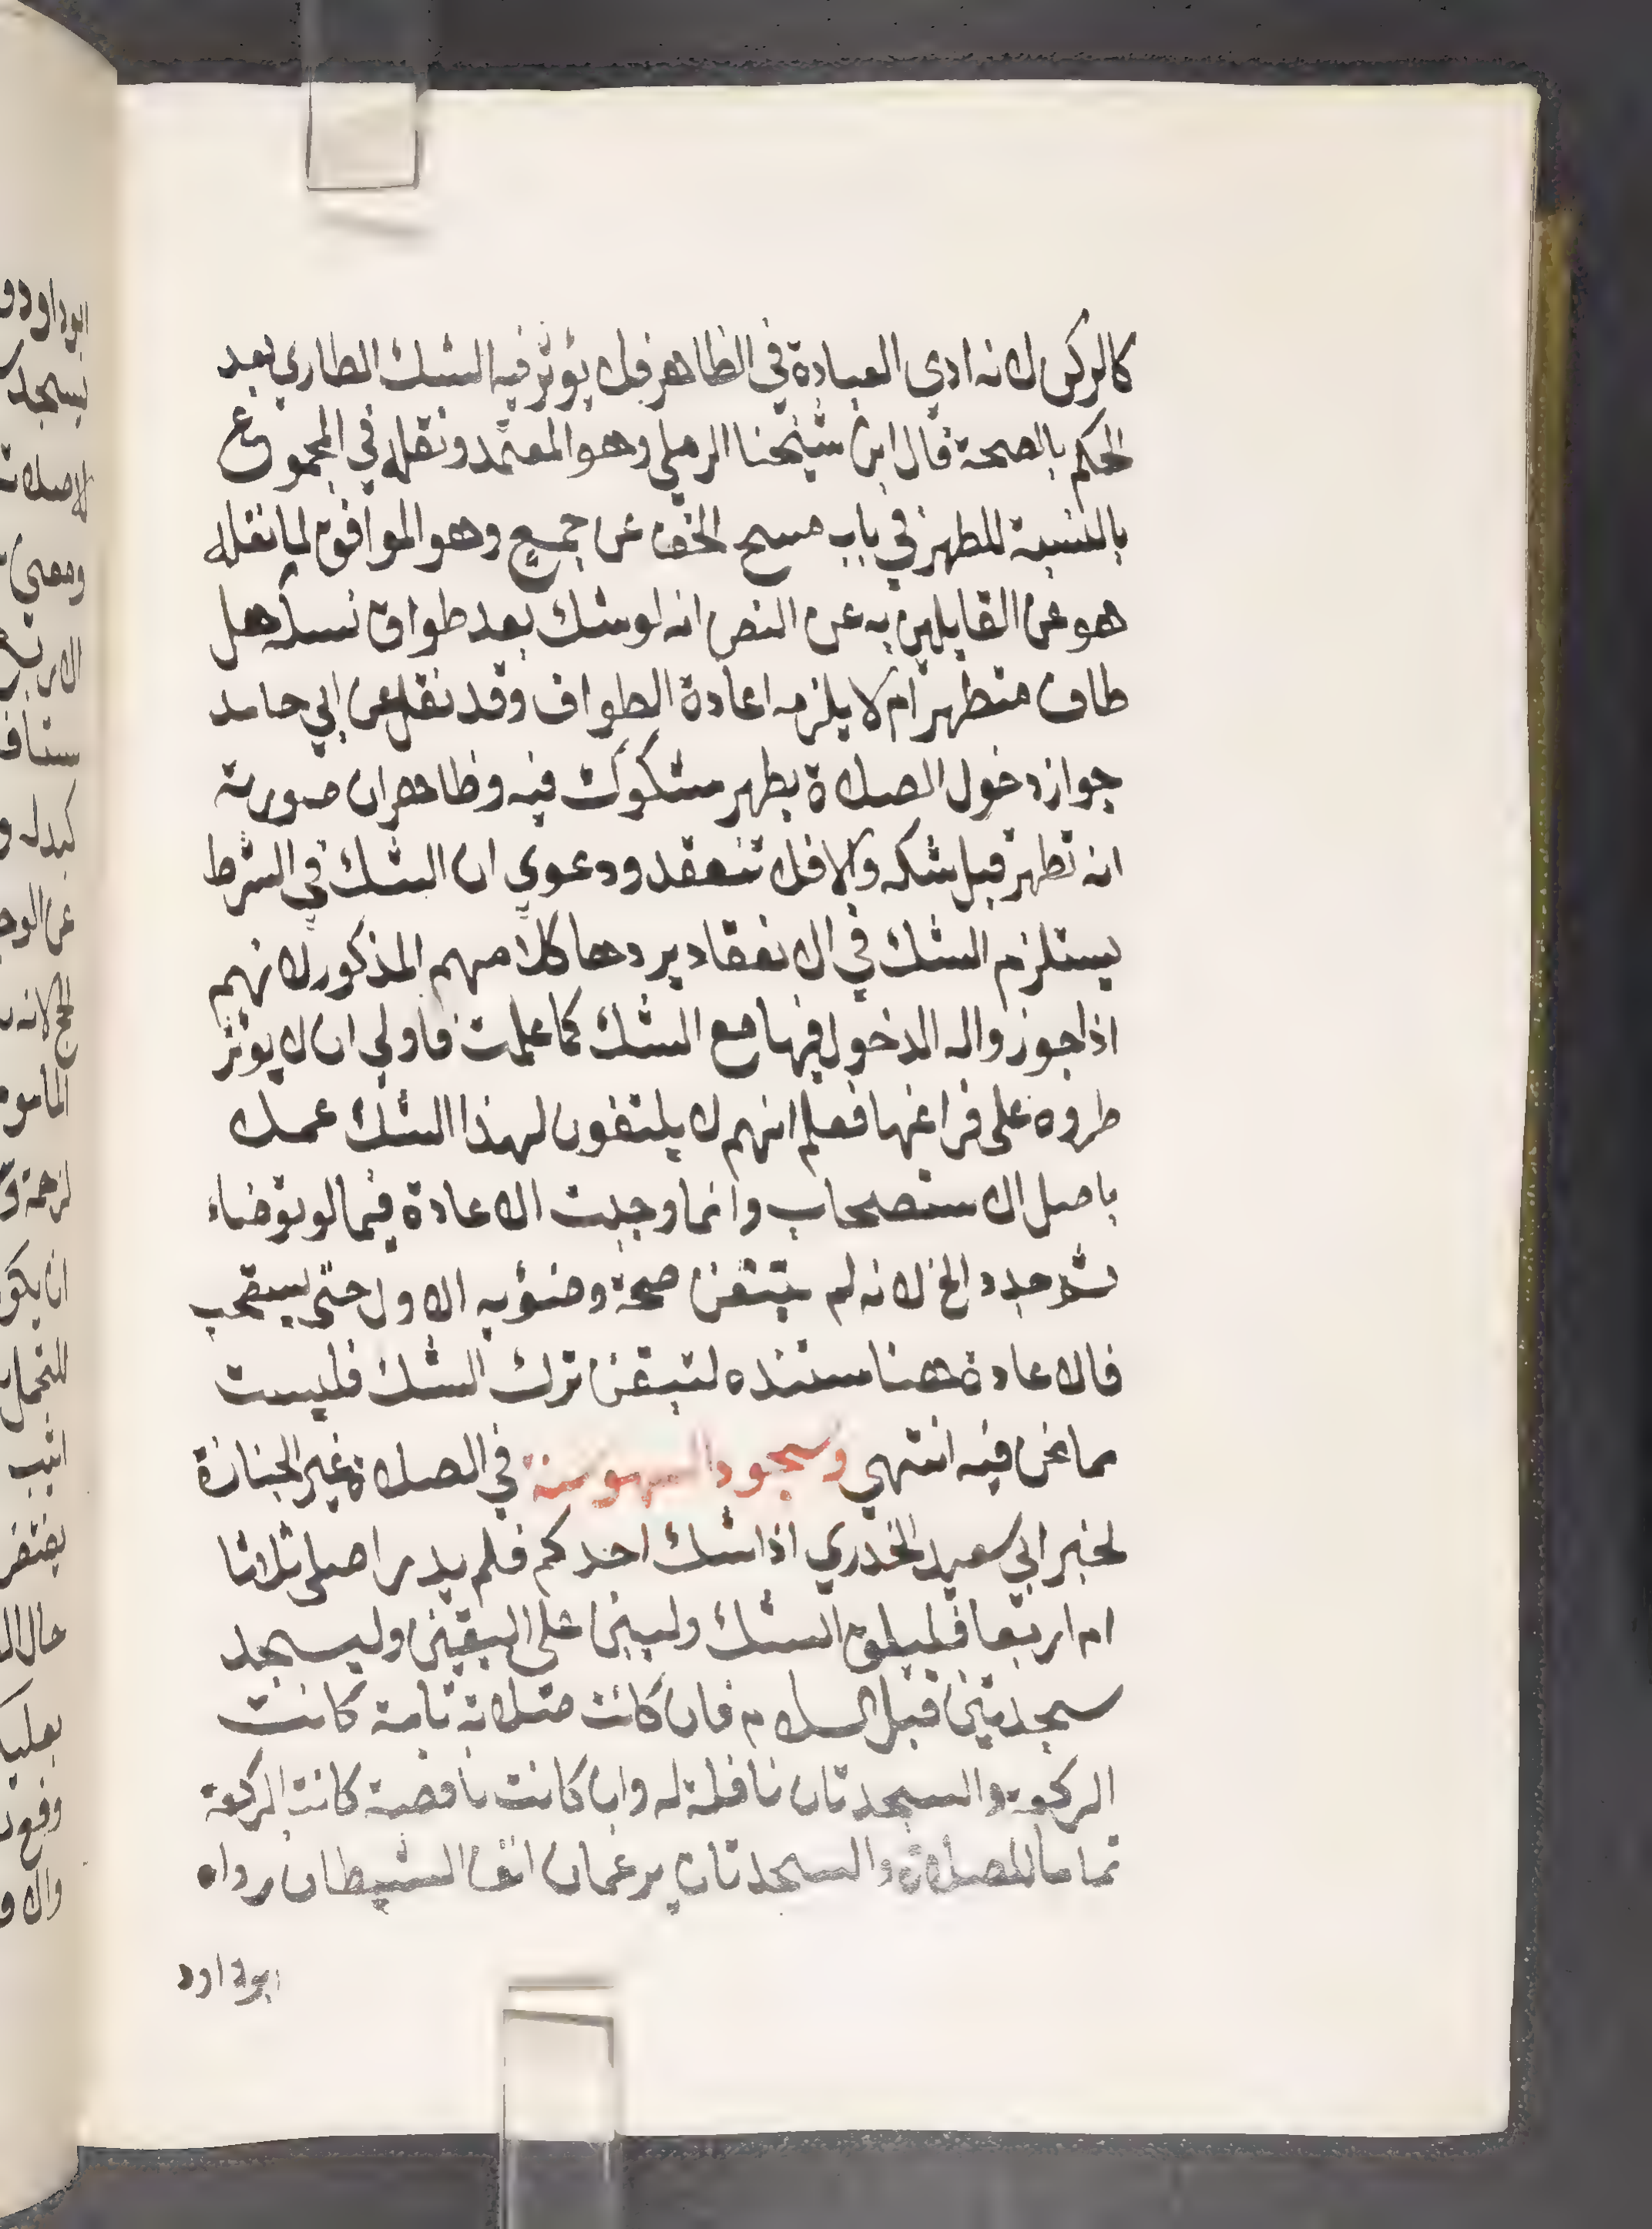 كالركن لانه ادي العبادة في الظاهر فلا يؤثر فيه الشك الطاري بعد
الحكم بالصحة قال ابن شيخنا الرملي وهو المعتمد ونقله في المجموع
بالنسبة للطهر في باب مسح الخف عن جميع وهو الموافق لما نقله
هو عن القايلين به عن النص انه لو شك بعد طواف نسكه هل
طاف متطهر ام لا يلزمه اعادة الطواف وقد نقل عن ابي حامد
جواز دخول الصلاة بطهر مشكوك فيه وظاهر ان صورته
انه تطهر قبل شكه والا فلا تنعقد ودعوي ان الشك في الشرط
يستلزم الشك في الانعقاد يردها كلامهم المذكور لانهم
اذا جوز واله الدخول فيها مع الشك كما علمت فاولي ان لا يوثر
طروه على فراغها فعلم انهم لا يلتفون لهذا الشك عملا
باصل الاستصحاب وانما وجبت الاعادة فيما لو توضاء
ثم جدد الخ لانه لم يتيقن صحة وضؤيه الاول حتى يستصحب
فالاعادة هنا مستنده لتيقن ترك الشك فليست
مما نحن فيه انتهي وسجود السهو سنة في الصلاة غير الجنازة
لخبر ابي سعيد الخدري اذا شك احدكم فلم يدر اصلى ثلاثا
ام اربعا فليلق الشك وليبن على اليقين وليسجد
سجدتين قبل السلام فان كانت صلاته تامة كانت
الركعة والسجدتان نافلة له وان كانت ناقصة كانت الركعة
تماما للصلاة والسجدتان يرغمان انف الشيطان رواه
ابو داود